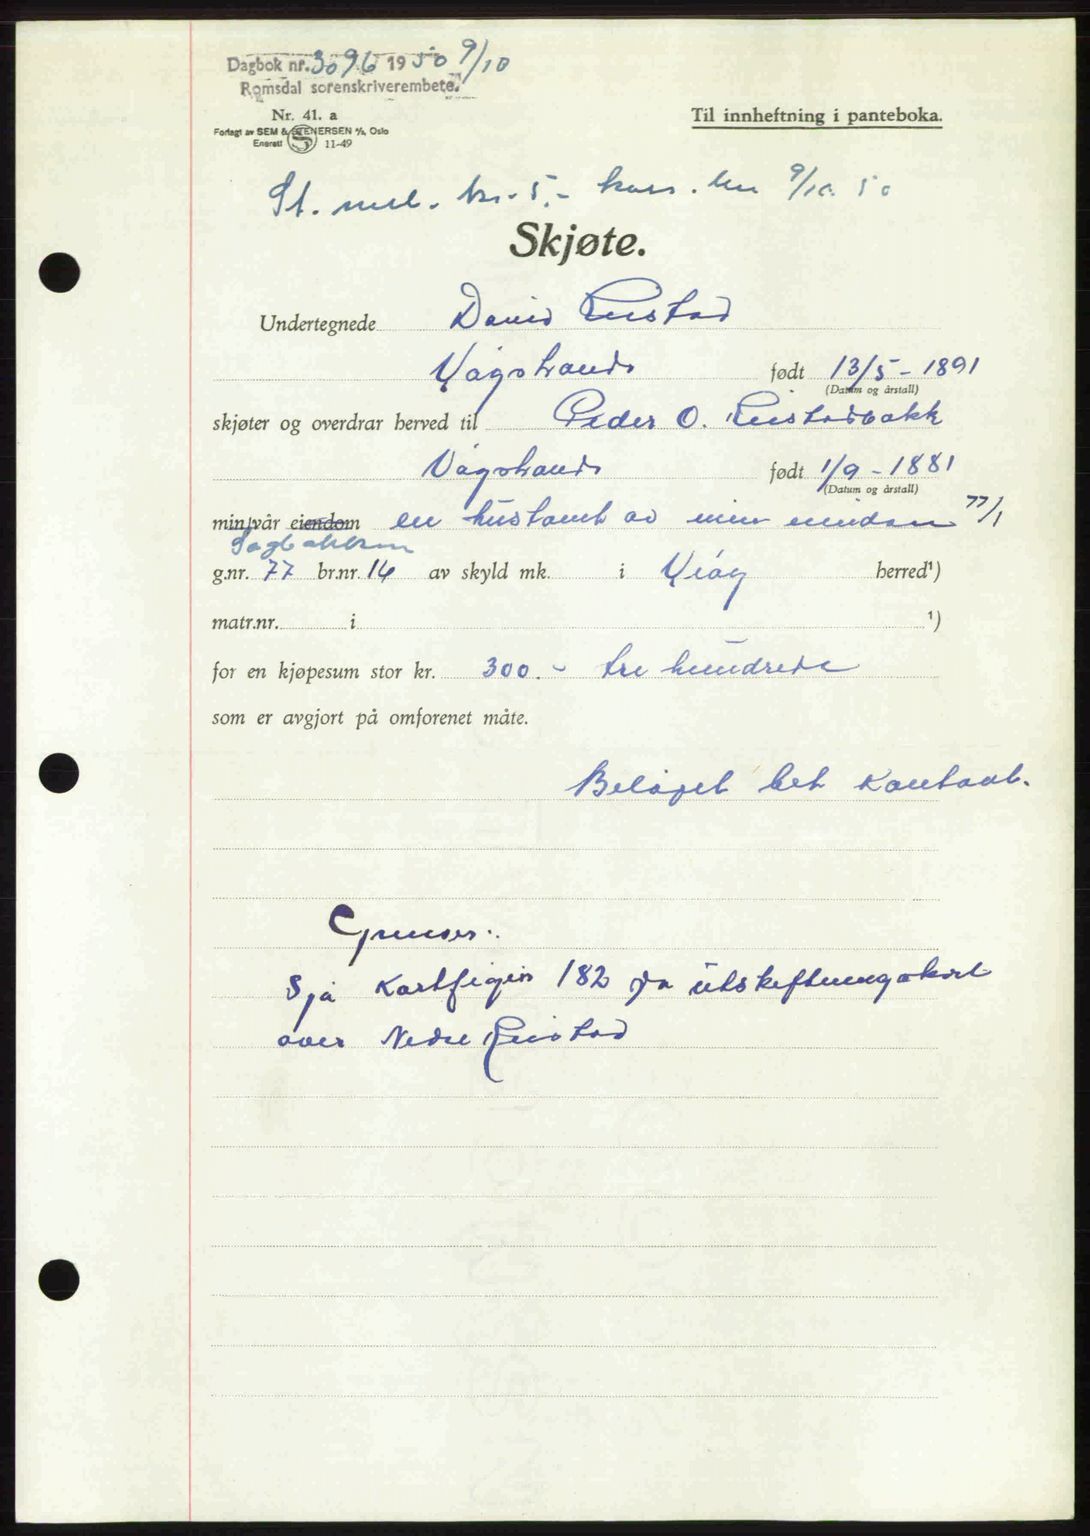 Dagbok nr. 3096 1950 9/10
Romsdal sorenskriverembete.
Nr. 41. a
Forlagt av SEM & STENERSEN A/S, Oslo
Enerett 11-49
Til innheftning i panteboka.
St. mrk. kr. 5.- kass. den 9/10 50
Skjøte.
Undertegnede David Reistad
Vågstranda født 13/5 - 1891
(Datum og årstall)
skjøter og overdrar herved til Peder O. Reistadbakk
Vågstranda født 1/9 - 1881
(Datum og årstall)
min/vår eiendom en hustomt av min eiendom 77/1
g.nr. 77 br.nr. 14 av skyld mk. i Veøy herred¹)
matr.nr. i ¹)
for en kjøpesum stor kr. 300.- tre hundrede
som er avgjort på omforenet måte.
Beløpet bet kontant.
Grenser:
Sjå Kartfigur 182 på utskiftningskart
over Nedre Reistad